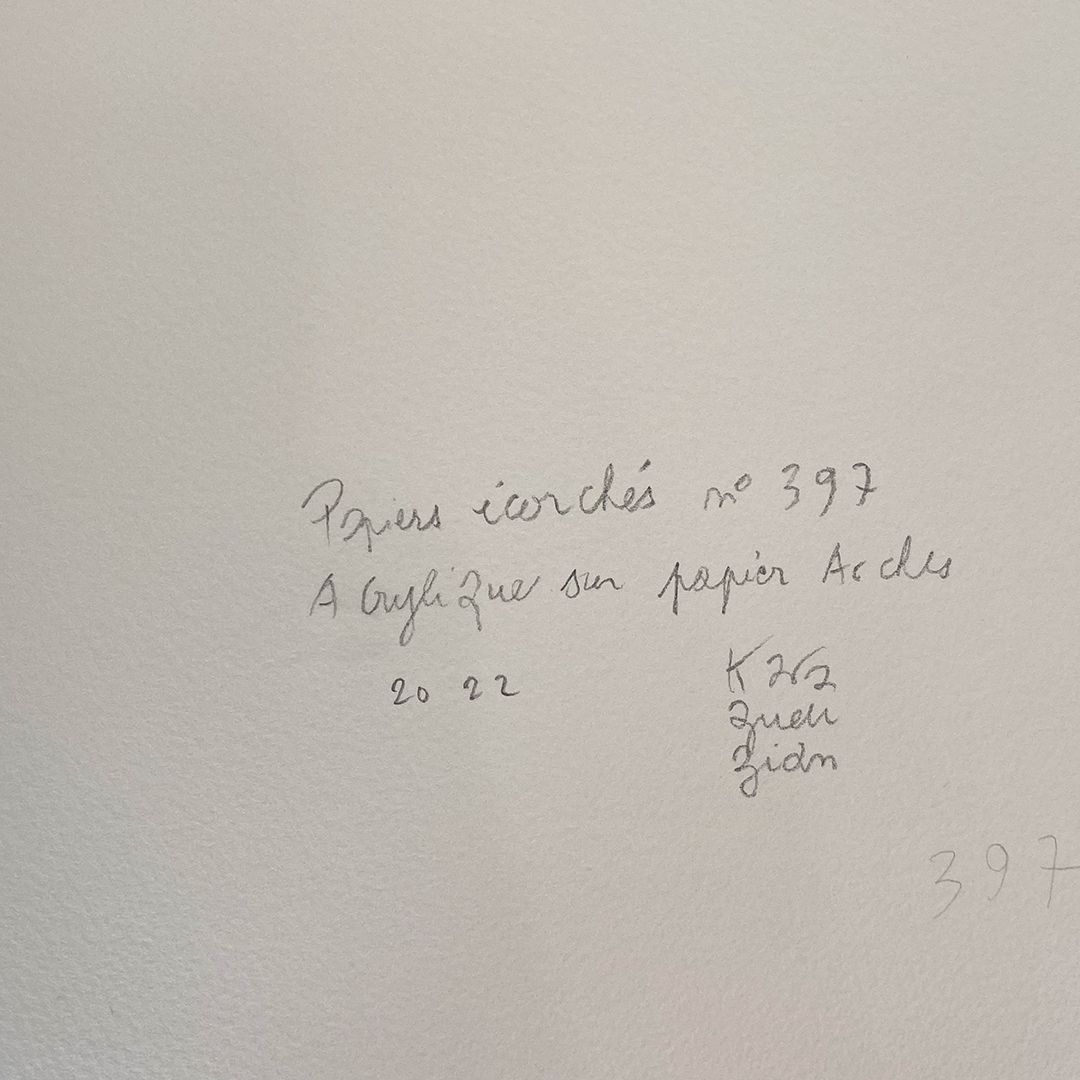 Papiers écorchés n° 397
Acrylique sur papier Arches
2022
Kara
zueu
zian
397